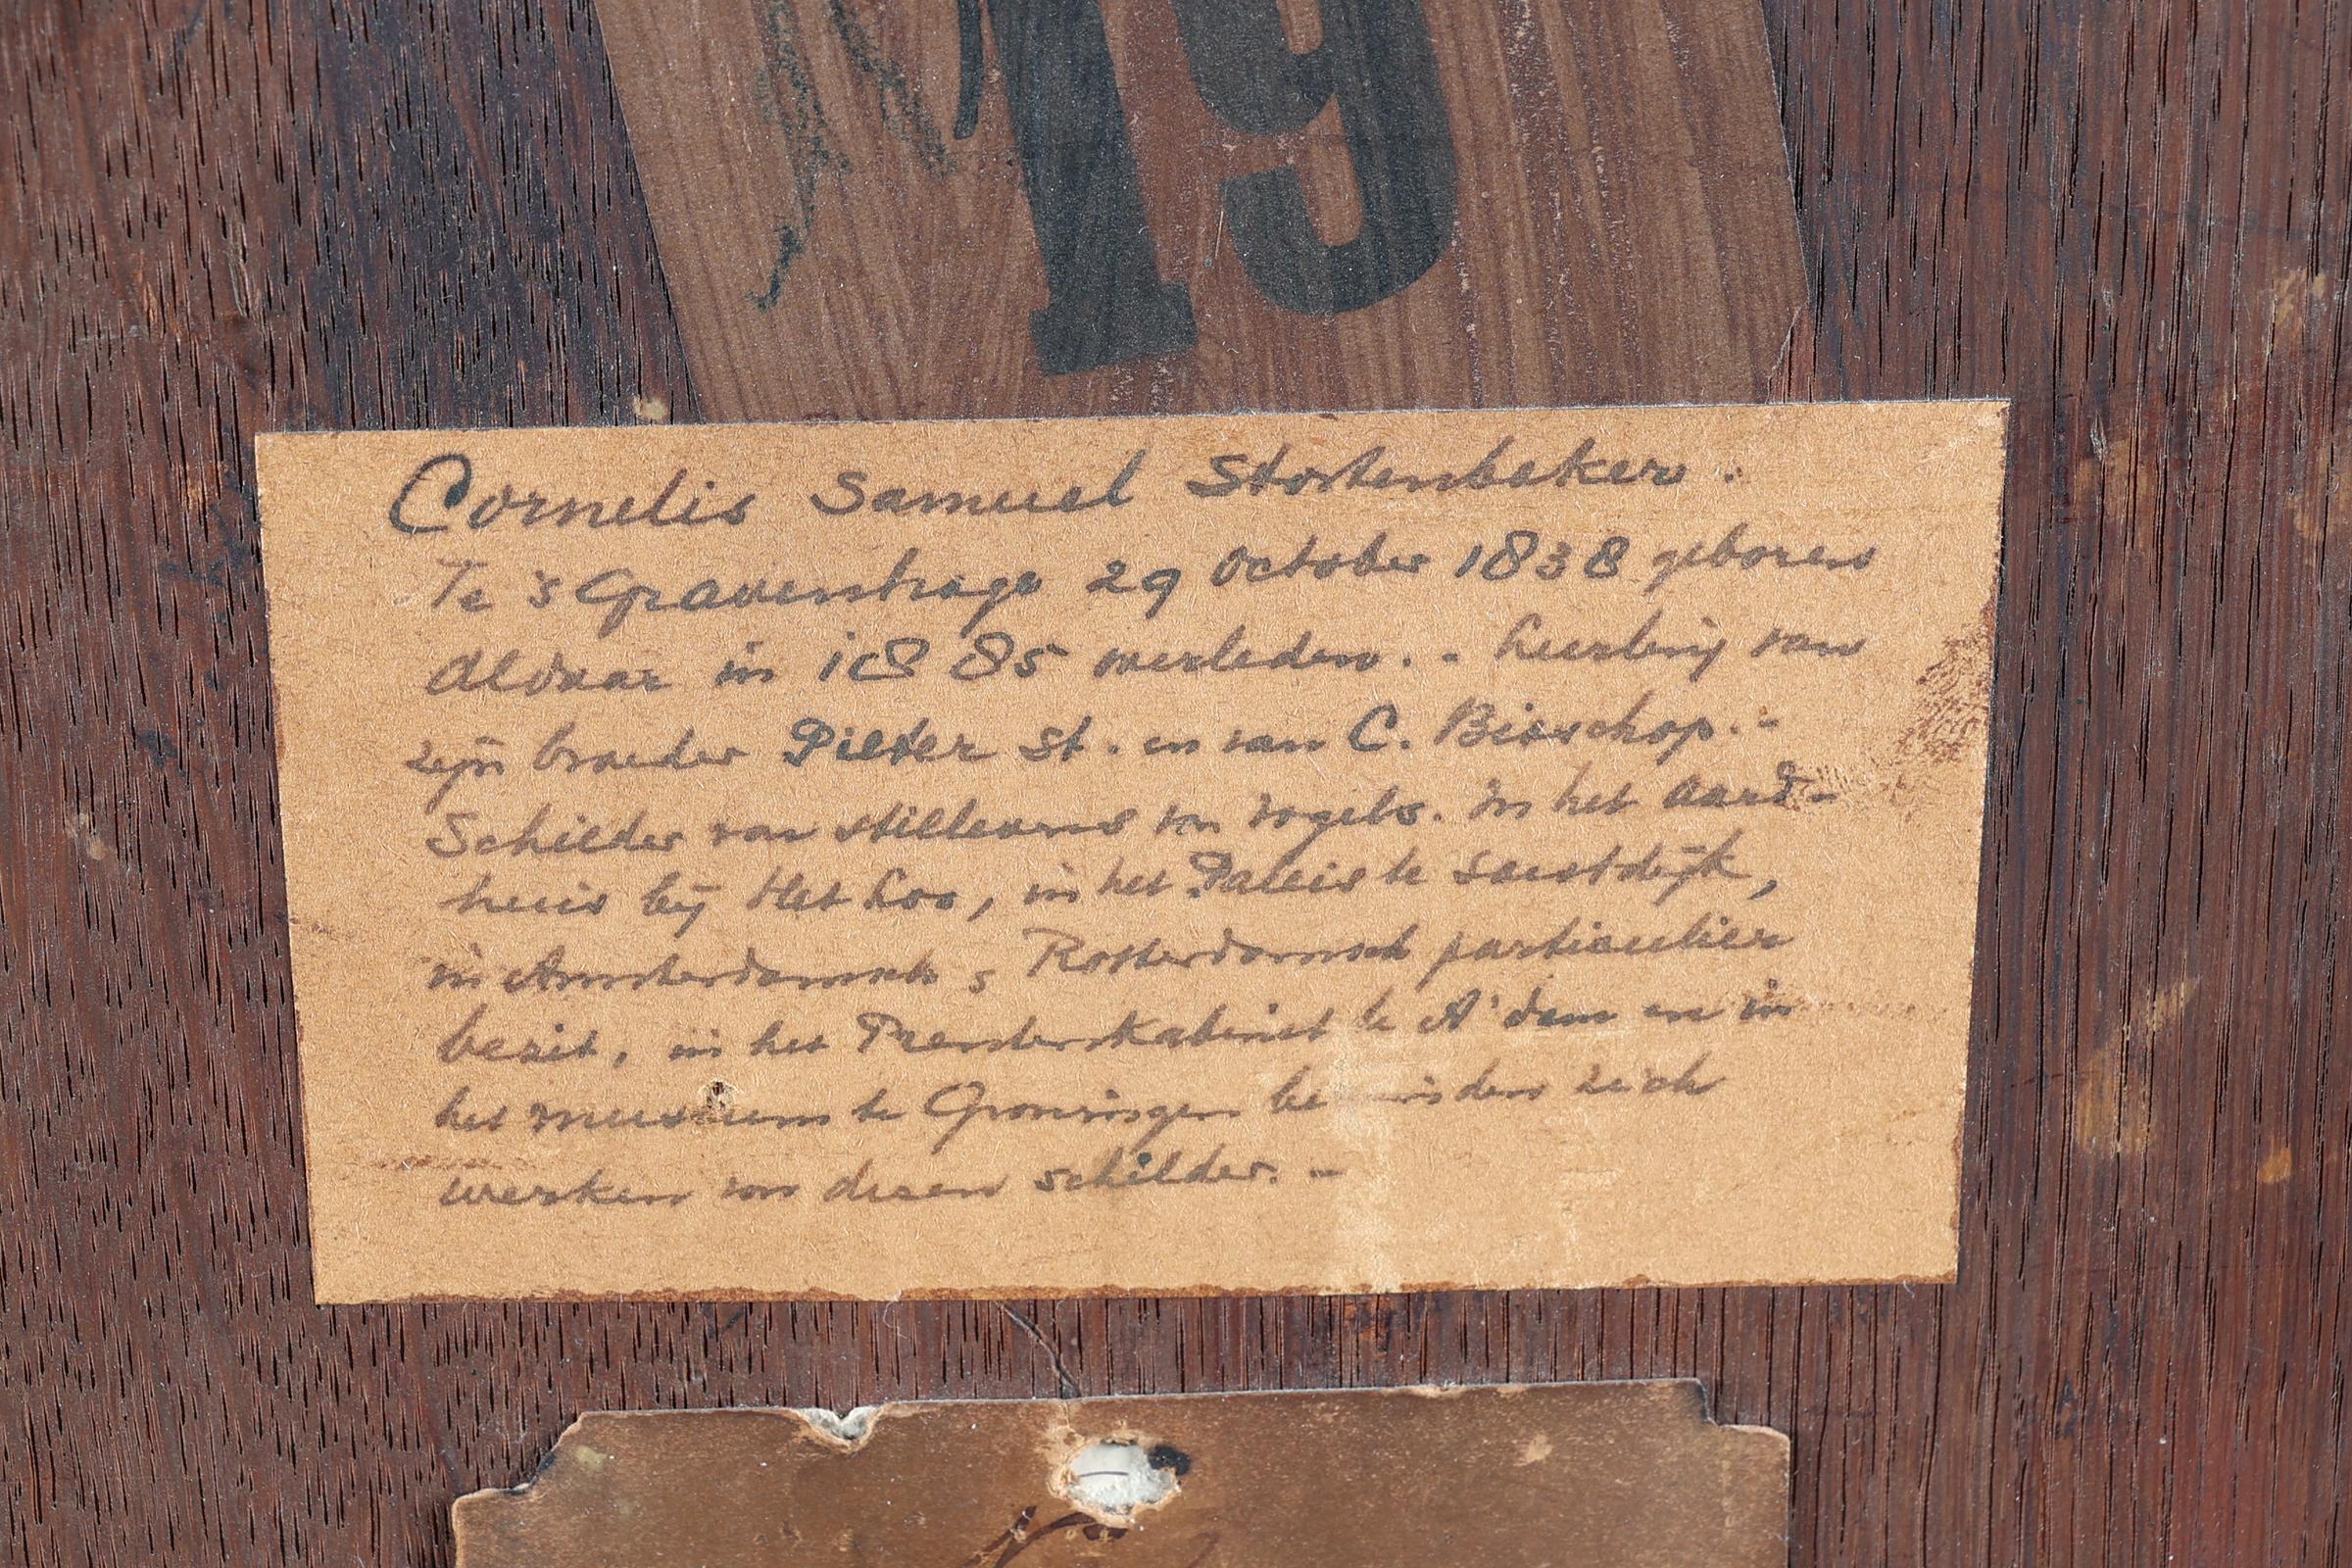 19
Cornelis Samuel Stortenbeker.
Te 's Gravenhage 29 October 1838 geboren
Aldaar in 1885 overleden. - Leerling van
zijn broeder Pieter St. en van C. Bisschop. -
Schilder van stillevens en vogels. In het Aard-
huis bij Het Loo, in het Paleis te Soestdijk,
in Amsterdamsch, Rotterdamsch particulier
bezit, in het Prentenkabinet te A'dam en in
het museum te Groningen bevinden zich
werken van dezen schilder. -